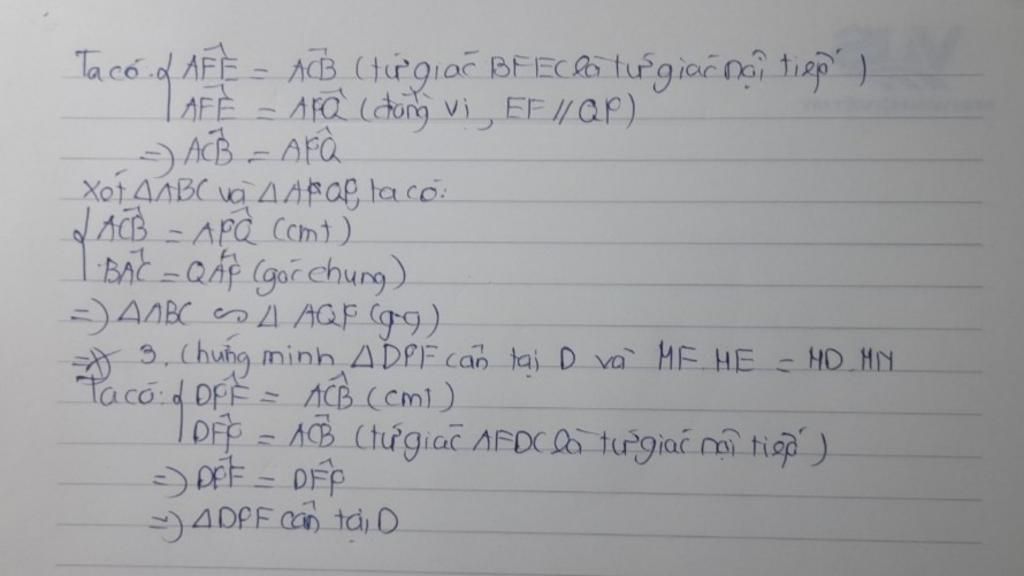 Ta có: { AFE = ACB (tứ giác BFEC là tứ giác nội tiếp)
AFE = APQ (đồng vị, EF // QP)
=> ACB = APQ
Xét ΔABC và ΔAQP, ta có:
{ ACB = APQ (cmt)
BAC = QAP (góc chung)
=> ΔABC ∽ Δ AQP (g-g)
=> 3. Chứng minh ΔDPF cân tại D và MF.ME = MD.MN
Ta có: { DPF = ACB (cmt)
DFP = ACB (tứ giác AFDC là tứ giác nội tiếp)
=> DPF = DFP
=> ΔDPF cân tại D